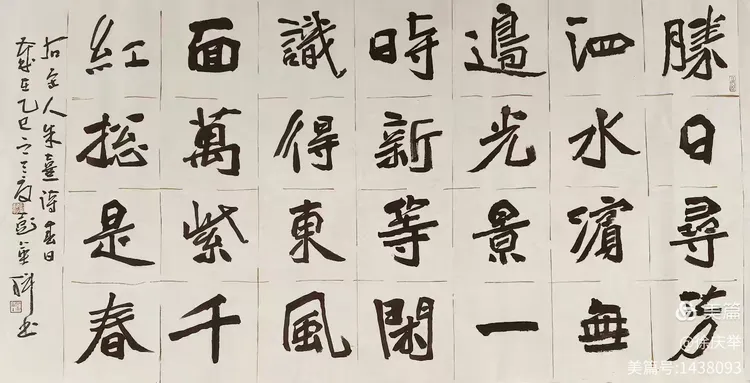 勝日尋芳
泗水濱無
邊光景一
時新等閑
識得東風
面萬紫千
紅總是春
右宋人朱熹詩春日
歲在乙巳之夏彭
美篇
@徐庆举
美篇号:1438093